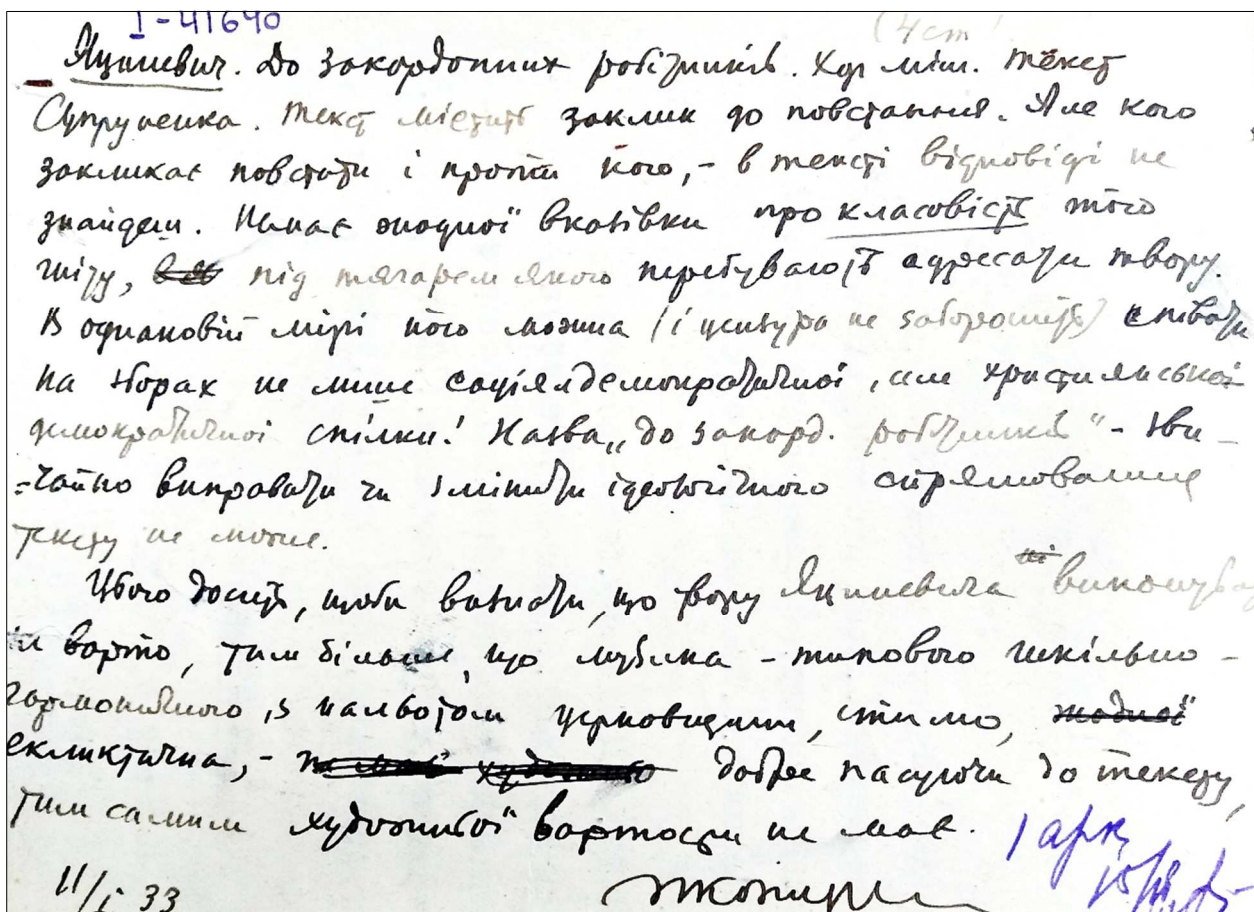 I-41640
(4 ст
Яциневич. До закордонних робітників. Хор міш. текст
Супруненка. Текст містить заклик до повстання. Але кого
закликає повстати і проти кого, - в тексті відповіді не
знайдеш. Немає жодної вказівки про класовість того
гніту, під тягарем якого перебувають адресати твору.
В однаковій мірі його можна (і цензура не заборонить) співати
на зборах не лише соціялдемократичної, але християнської
демократичної спілки! Назва „до закорд. робітників" - зви-
-чайно виправити чи змінити ідеологічного спрямування
тексту не може.
Цього досить, щоби визнати, що твору Яциневича виконува
не варто, тим більше, що музика - типового шкільно-
гармонічного, з нальотом церковщини, стилю,
еклектична, - добре пасуючи до тексту,
тим самим художньої вартости не має.
1 арк
11/I 33